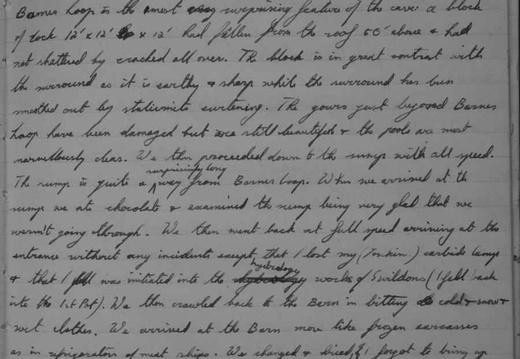 Barnes Loop is the most surprising feature of the cave a block
of rock 12' x 12' x 12' had fallen from the roof 50' above & had
not shattered by cracked all over. The block is in great contrast with
the surround as it is earthy & sharp while the surround has been
smoothed out by stalagmite curtening. The gours just beyond Barnes
Loop have been damaged but are still beautiful & the pools are most
marvellously clear. We then proceeded down to the sump with all speed.
The sump is quite a surprisingly long way from Barnes Loop. When we arrived at the
sump we ate chocolate & examined the sump being very glad that we
weren't going through. We then went back at full speed arriving at the
entrance without any incidents except that I lost my (Tonkin) carbide lamp
& that I was initiated into the hydrology works of Swildons (I fell back
into the 1st Pot). We then crawled back to the Barn in bitting cold & snow &
wet clothes. We arrived at the Barn more like frozen carcasses
as in refrigerators of meat ships. We changed & I forgot to bring up